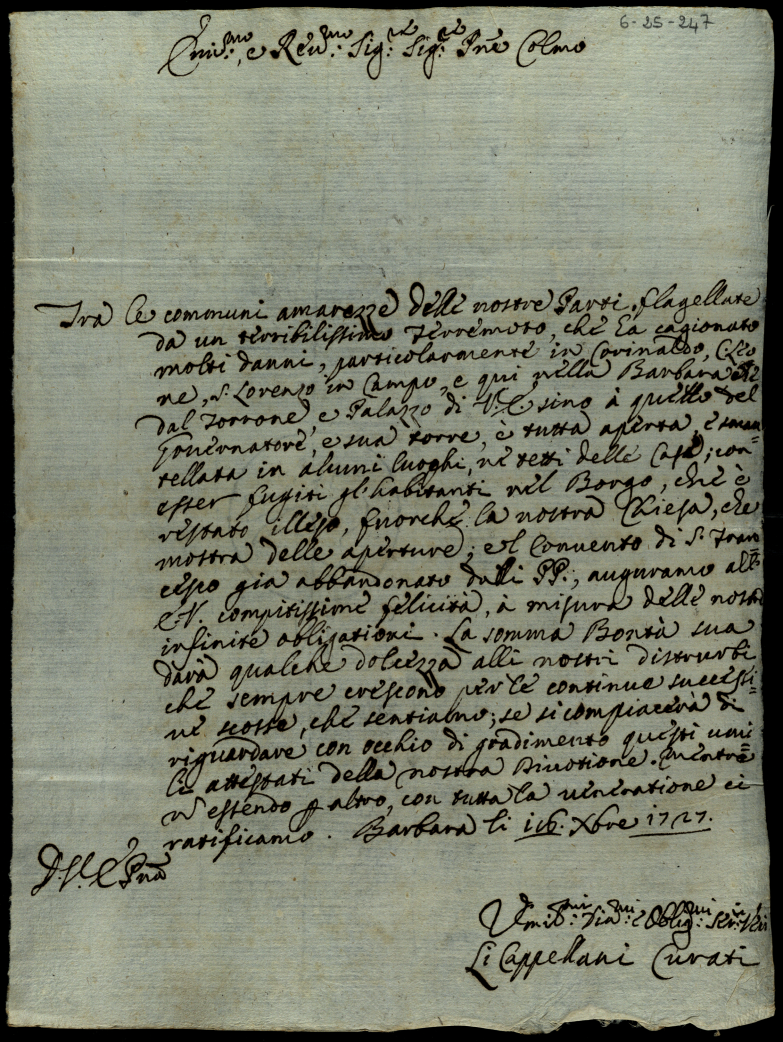 6-25-247
Emi:mo, e Reu:mo Sig:re Sig:re Pne Colmo
Tra le communi amarezze delle nostre Parti flagellate
da un terribilissimo Terremoto, che ha cagionato
molti danni, particolarmente in Corinaldo,
ne, S. Lorenzo in Campo, e qui nella Barbara
dal Torrone, e Palazzo di V.E. sino à quello del
Gouernatore, e sua torre, è tutta aperta, e sman=
tellata in alcuni luoghi, ne tetti delle Case; con=
esser fugiti gl'habitanti nel Borgo, che è
restato illeso, fuorche la nostra Chiesa, che
mostra delle aperture; e'l Conuento di S. Fran=
cesco gia abbandonato dalli PP., auguramo all'
E.V. compitissime felicità, à misura delle nostre
infinite obligationi. La somma Bontà sua
darà qualche dolcezza alli nostri disturbi
che sempre crescono per le continue successi=
ue scosse, che sentiamo; se si compiacerà di
riguardare con occhio di gradimento questi umi=
li attestati della nostra Diuotione. Mentre
n' estendo p altro, con tutta la ueneratione ci
ratificamo. Barbara li 16. Xbre 1727.
D. V. E. Pna
Vmil:mi Diu:mi e Oblig:mi Ser:ri
Li Cappellani Curati